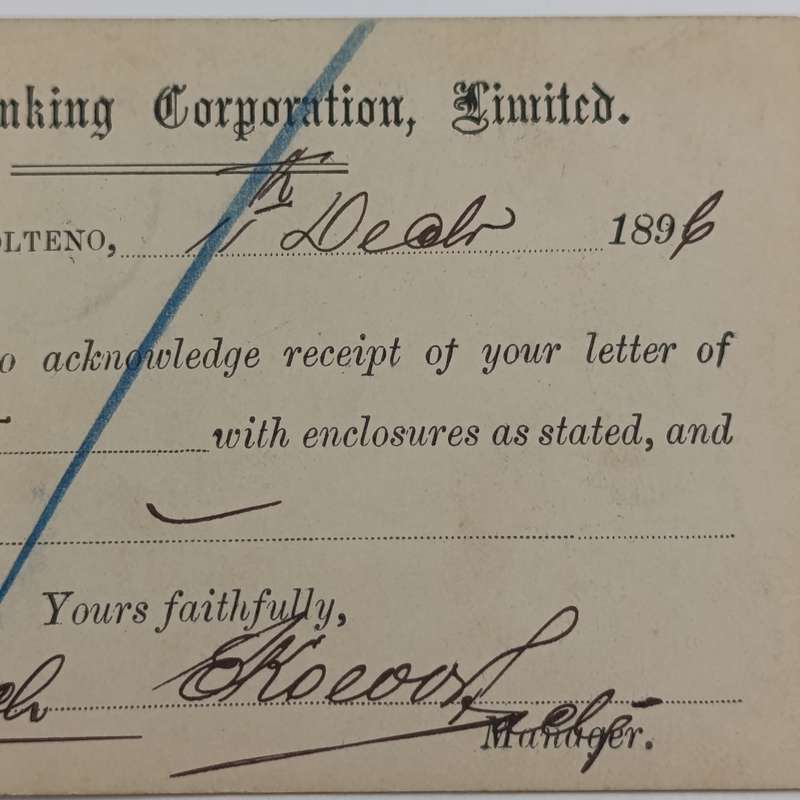 nking Corporation, Limited.
OLTENO, 11th Decbr 1896
o acknowledge receipt of your letter of
with enclosures as stated, and
Yours faithfully,
Manager.